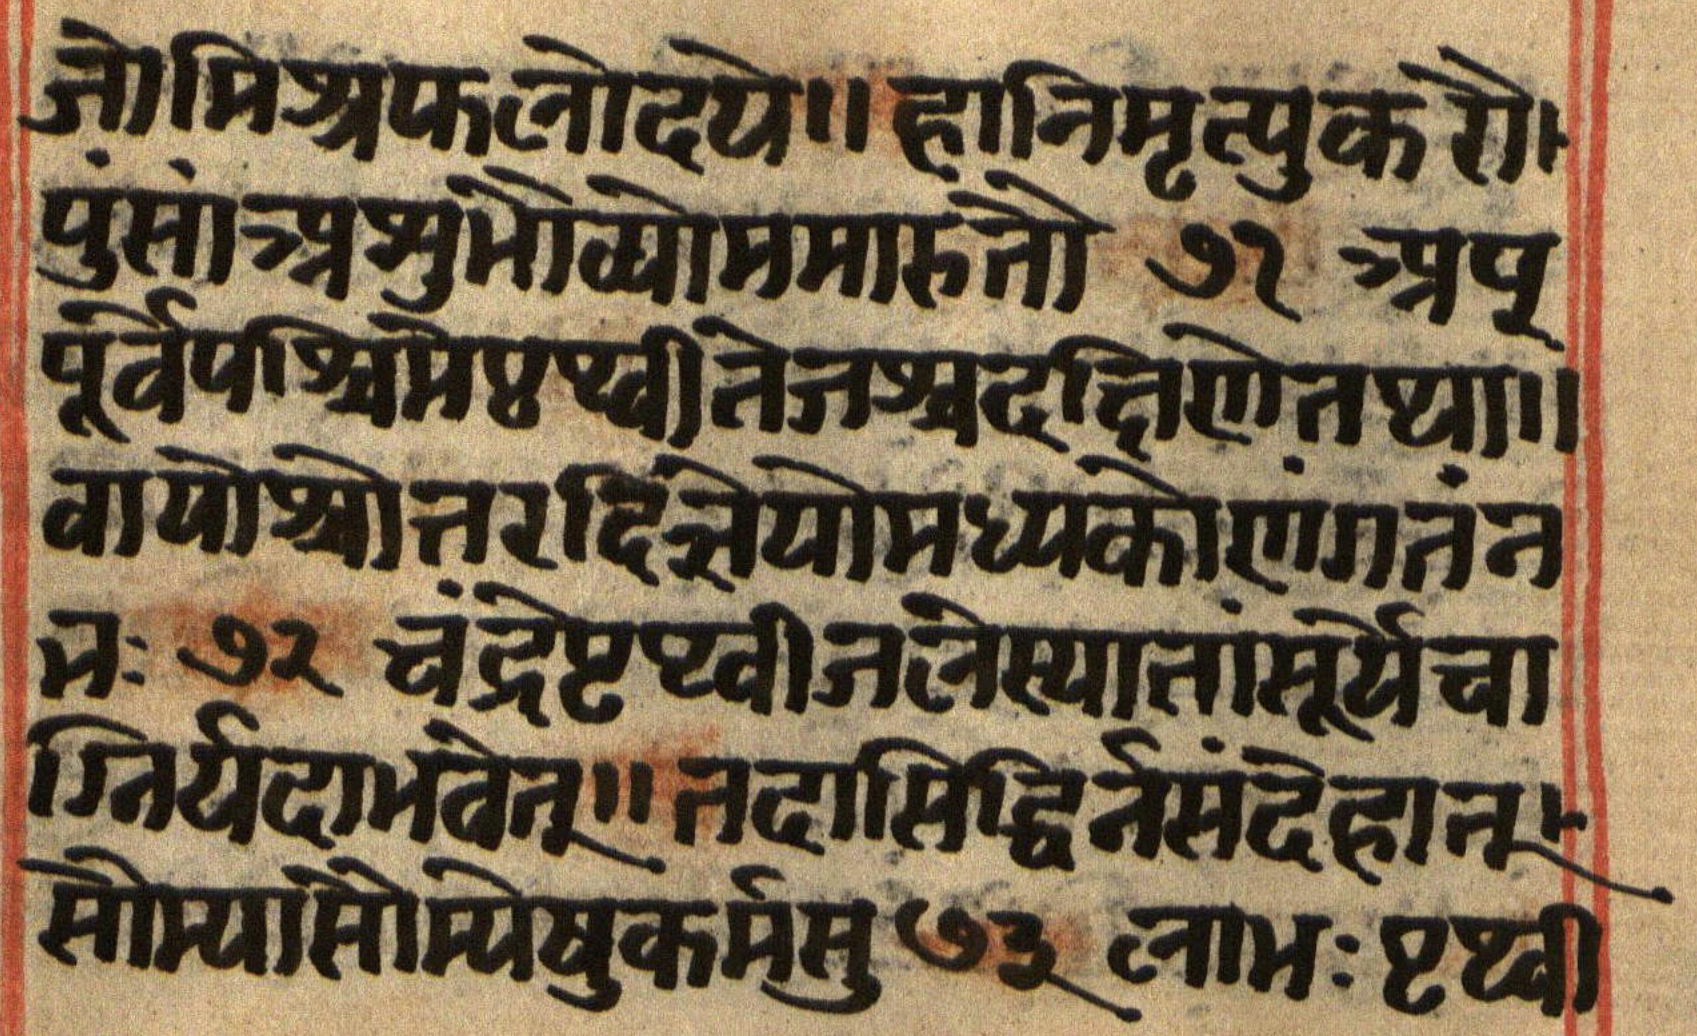 जो मिश्रफलोदये॥ हानिमृत्युकरौ
पुंसां अशुभो व्योममारुतौ ७१ अपू
पूर्वे पश्चिमे पृथ्वी तेजश्च दक्षिणे तथा॥
वायोश्चोत्तरदिक् ज्ञेयो मध्यकोणं गतं न
भः ७२ चंद्रे पृथ्वीजले स्यातां सूर्ये चा
ग्निर्यदा भवेत्॥ तदा सिद्धिर्न संदेहात्
सौम्यासौम्येषु कर्मसु ७३ लाभः पृथ्वी